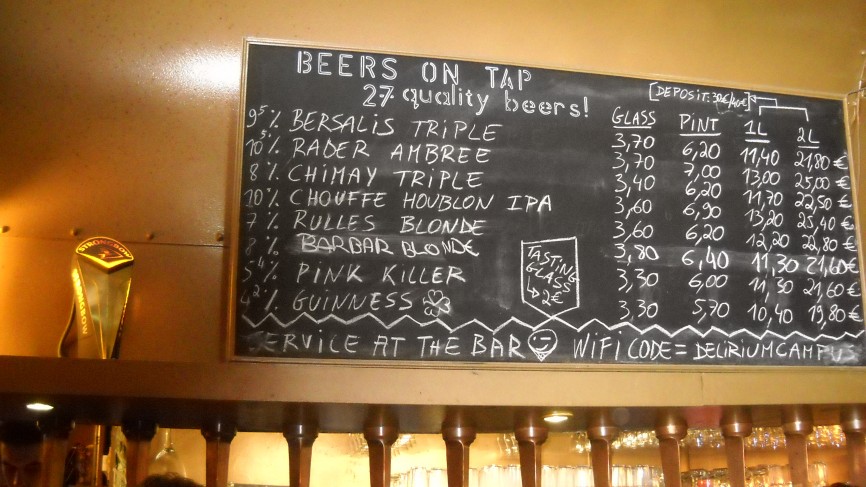 BEERS ON TAP
27 quality beers!
[DEPOSIT: 30€/40€]
GLASS PINT 1L 2L
9⁵% BERSALIS TRIPLE 3,70 6,20 11,40 21,80 €
10⁵% RADER AMBREE 3,70 7,00 13,00 25,00 €
8% CHIMAY TRIPLE 3,40 6,20 11,70 22,50 €
10% CHOUFFE HOUBLON IPA 3,60 6,90 13,20 25,40 €
7% RULLES BLONDE 3,60 6,20 12,20 22,80 €
8% BARBAR BLONDE 3,80 6,40 11,30 21,60 €
5⁴% PINK KILLER 3,30 6,00 11,30 21,60 €
4²% GUINNESS 3,30 5,70 10,40 19,80 €
TASTING
GLASS
↳ 2€
SERVICE AT THE BAR WIFI CODE = DELIRIUMCAMPUS
STRONGBOW